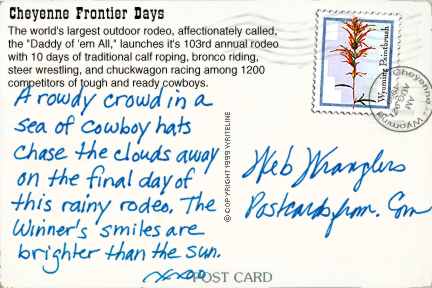 Cheyenne Frontier Days
The world's largest outdoor rodeo, affectionately called,
the "Daddy of 'em All," launches it's 103rd annual rodeo
with 10 days of traditional calf roping, bronco riding,
steer wrestling, and chuckwagon racing among 1200
competitors of tough and ready cowboys.
A rowdy crowd in a
sea of cowboy hats
chase the clouds away
on the final day of
this rainy rodeo. The
Winner's smiles are
brighter than the sun.
xoxoo
© COPYRIGHT 1999 WRITELINE
Wyoming Paintbrush
Cheyenne
AM
Wyoming
Web Wranglers
Postcardsfrom.Com
POST CARD